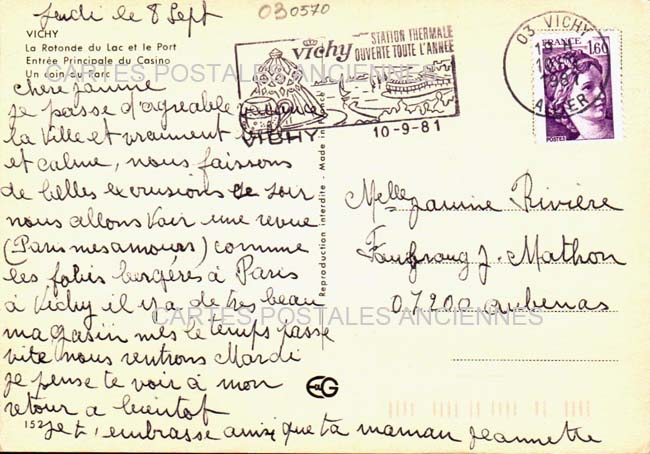 Jeudi le 8 Sept
030570
VICHY
La Rotonde du Lac et le Port
Entrée Principale du Casino
Un coin du Parc
CARTES POSTALES ANCIENNES
chère Janine
je passe d'agréable
la ville et vraiment
et calme, nous faissons
de belles excrusions ce soir
nous allons voir une revue
(Paris mes amours) comme
les folies bergères à Paris
à Vichy il y a de tres beau
magasin mes le temps passe
vite nous rentrons Mardi
je pense te voir à mon
retour a bientot
152
je t'embrasse ainsi que ta maman Jeannette
vichy
STATION THERMALE
OUVERTE TOUTE L'ANNÉE
VICHY
10-9-81
03 VICHY
ALLIER
FRANCE
1,60
POSTES
Reproduction interdite - Made in France
Melle Janine Rivière
Faubroug J. Mathon
07200 Aubenas
CARTES POSTALES ANCIENNES
EG